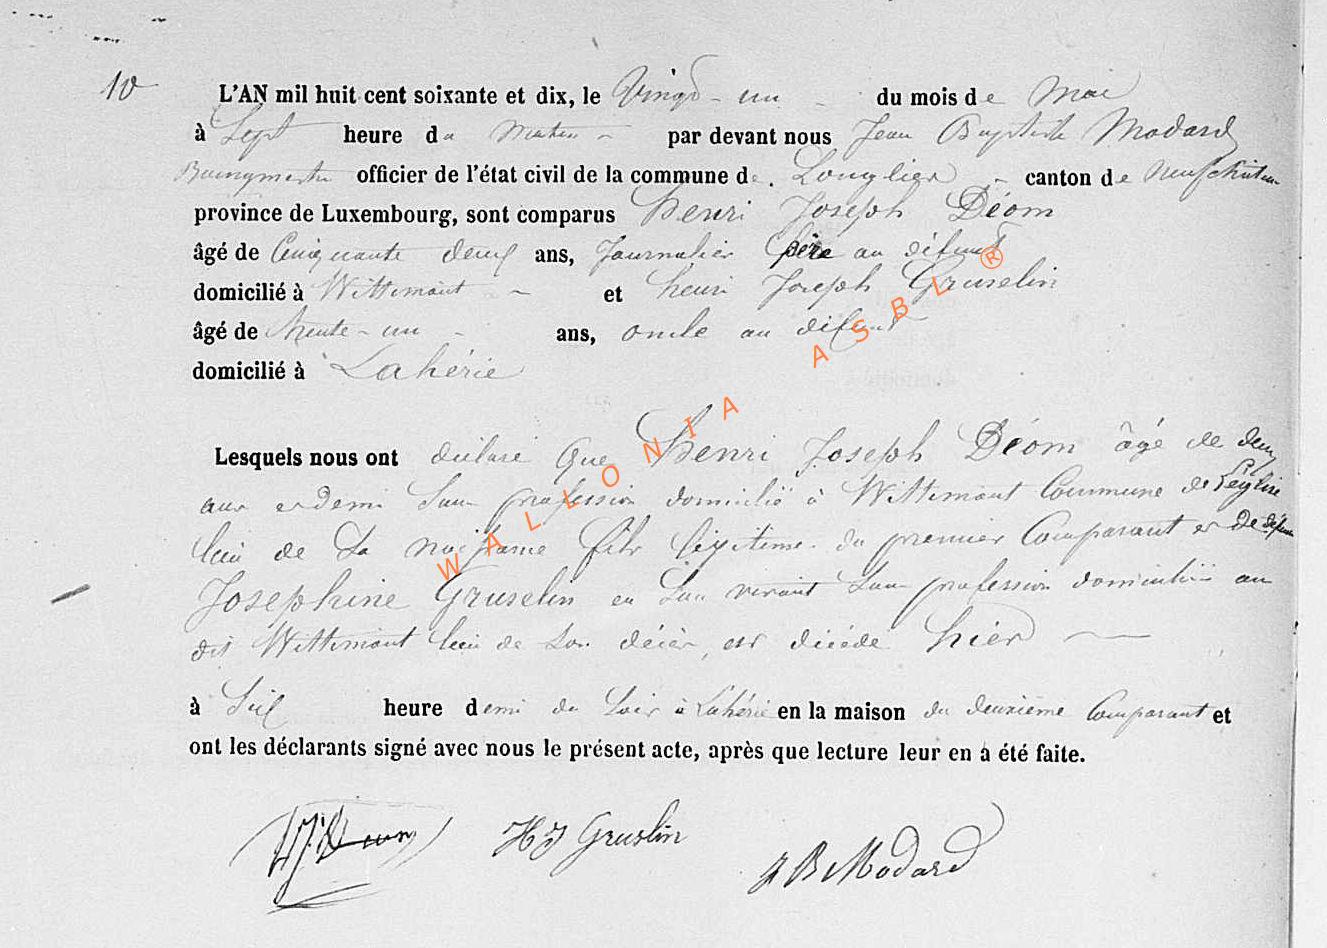 10
L'AN mil huit cent soixante et dix, le Vingt-un du mois de Mai
à Sept heure du Matin par devant nous Jean Baptiste Modard
Bourgmestre officier de l'état civil de la commune de Longlier canton de Neufchâteau
province de Luxembourg, sont comparus Henri Joseph Déom
âgé de Cinquante deux ans, Journalier père au défunt
domicilié à Wittimont et henri Joseph Gruselin
âgé de trente-un ans, oncle au défunt
domicilié à Lahérie
Lesquels nous ont déclaré Que Henri Joseph Déom âgé de deux
ans et demi Sans profession domicilié à Wittimont Commune de Léglise
lieu de Sa naissance fils légitime du premier Comparant et De défunte
Josephine Gruselin en Son vivant Sans profession domiciliée au
dit Wittimont lieu de Son décès, est décédé hier
à Six heure demi du Soir à Lahérie en la maison du deuxième Comparant et
ont les déclarants signé avec nous le présent acte, après que lecture leur en a été faite.
HJ Déom HJ Gruslin J B Modard
WALLONIA ASBL ®